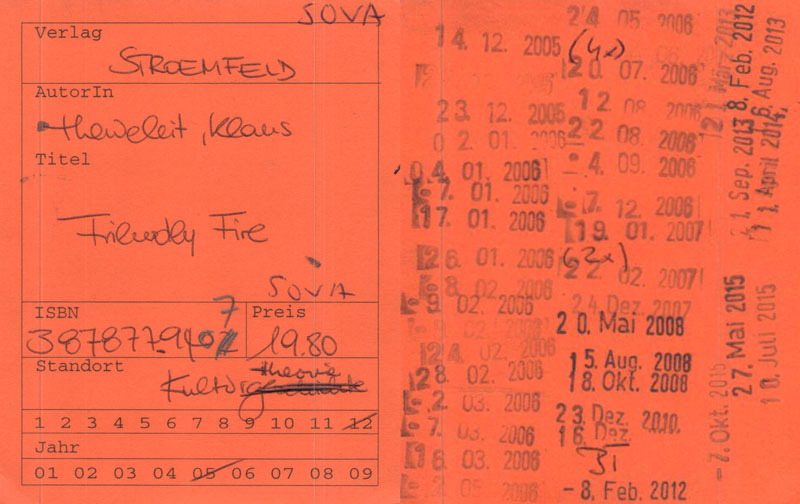 SOVA
Verlag
STROEMFELD
AutorIn
Theweleit, Klaus
Titel
Friendly Fire
SOVA
ISBN
Preis
7
387877940
19.80
Standort
theorie
Kultur
1 2 3 4 5 6 7 8 9 10 11 12
Jahr
01 02 03 04 05 06 07 08 09
24 05. 2006
14. 12. 2005
(4x)
20. 07. 2006
12 08 2006
23. 12. 2005
02. 01.
22 08. 2006
04. 01. 2006
4. 09. 2006
7. 01. 2006
7. 12. 2006
17. 01. 2006
19. 01. 2007
26. 01. 2006
(2x)
22 02. 2007
8. 02. 2006
9 02. 2006
24. Dez. 2007
20. Mai 2008
24. 02. 2006
15. Aug. 2008
28. 02. 2006
18. Okt. 2008
2. 03. 2006
23. Dez. 2010
7. 03. 2006
16. Dez.
18. 03. 2006
2 05 2006
- 8. Feb. 2012
21. März 2013
8. Feb. 2012
6. Aug. 2013
1. Sep. 2013
1. April 2014
27. Mai 2015
10. Juli 2015
- 7. Okt. 2015